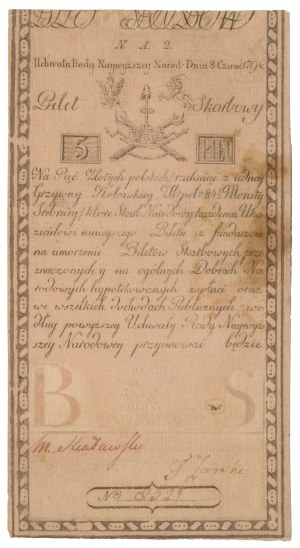 N. A. 2.
Uchwała Rady Naywyższey Narod: Dnia 8 Czerw: 1794 r.
Bilet Skarbowy
5 PIĘĆ
Na Pięć Złotych polskich, rachuiąc z iedney
Grzywny Kolońskiey Zł: pol: 84½ Monety
Srebrney, które Skarb Narodowy każdemu Oka-
zicielowi ninieyszego Biletu z funduszów
na umorzenie Biletów Skarbowych prze-
znaczonych y na ogólnych Dobrach Na-
rodowych hypotekowanych zapłaci oraz
we wszelkich dochodach Publicznych, we-
dług powyższey Uchwały Rady Naywyż-
szey Narodowey przyimować będzie
B S
M.
Nº